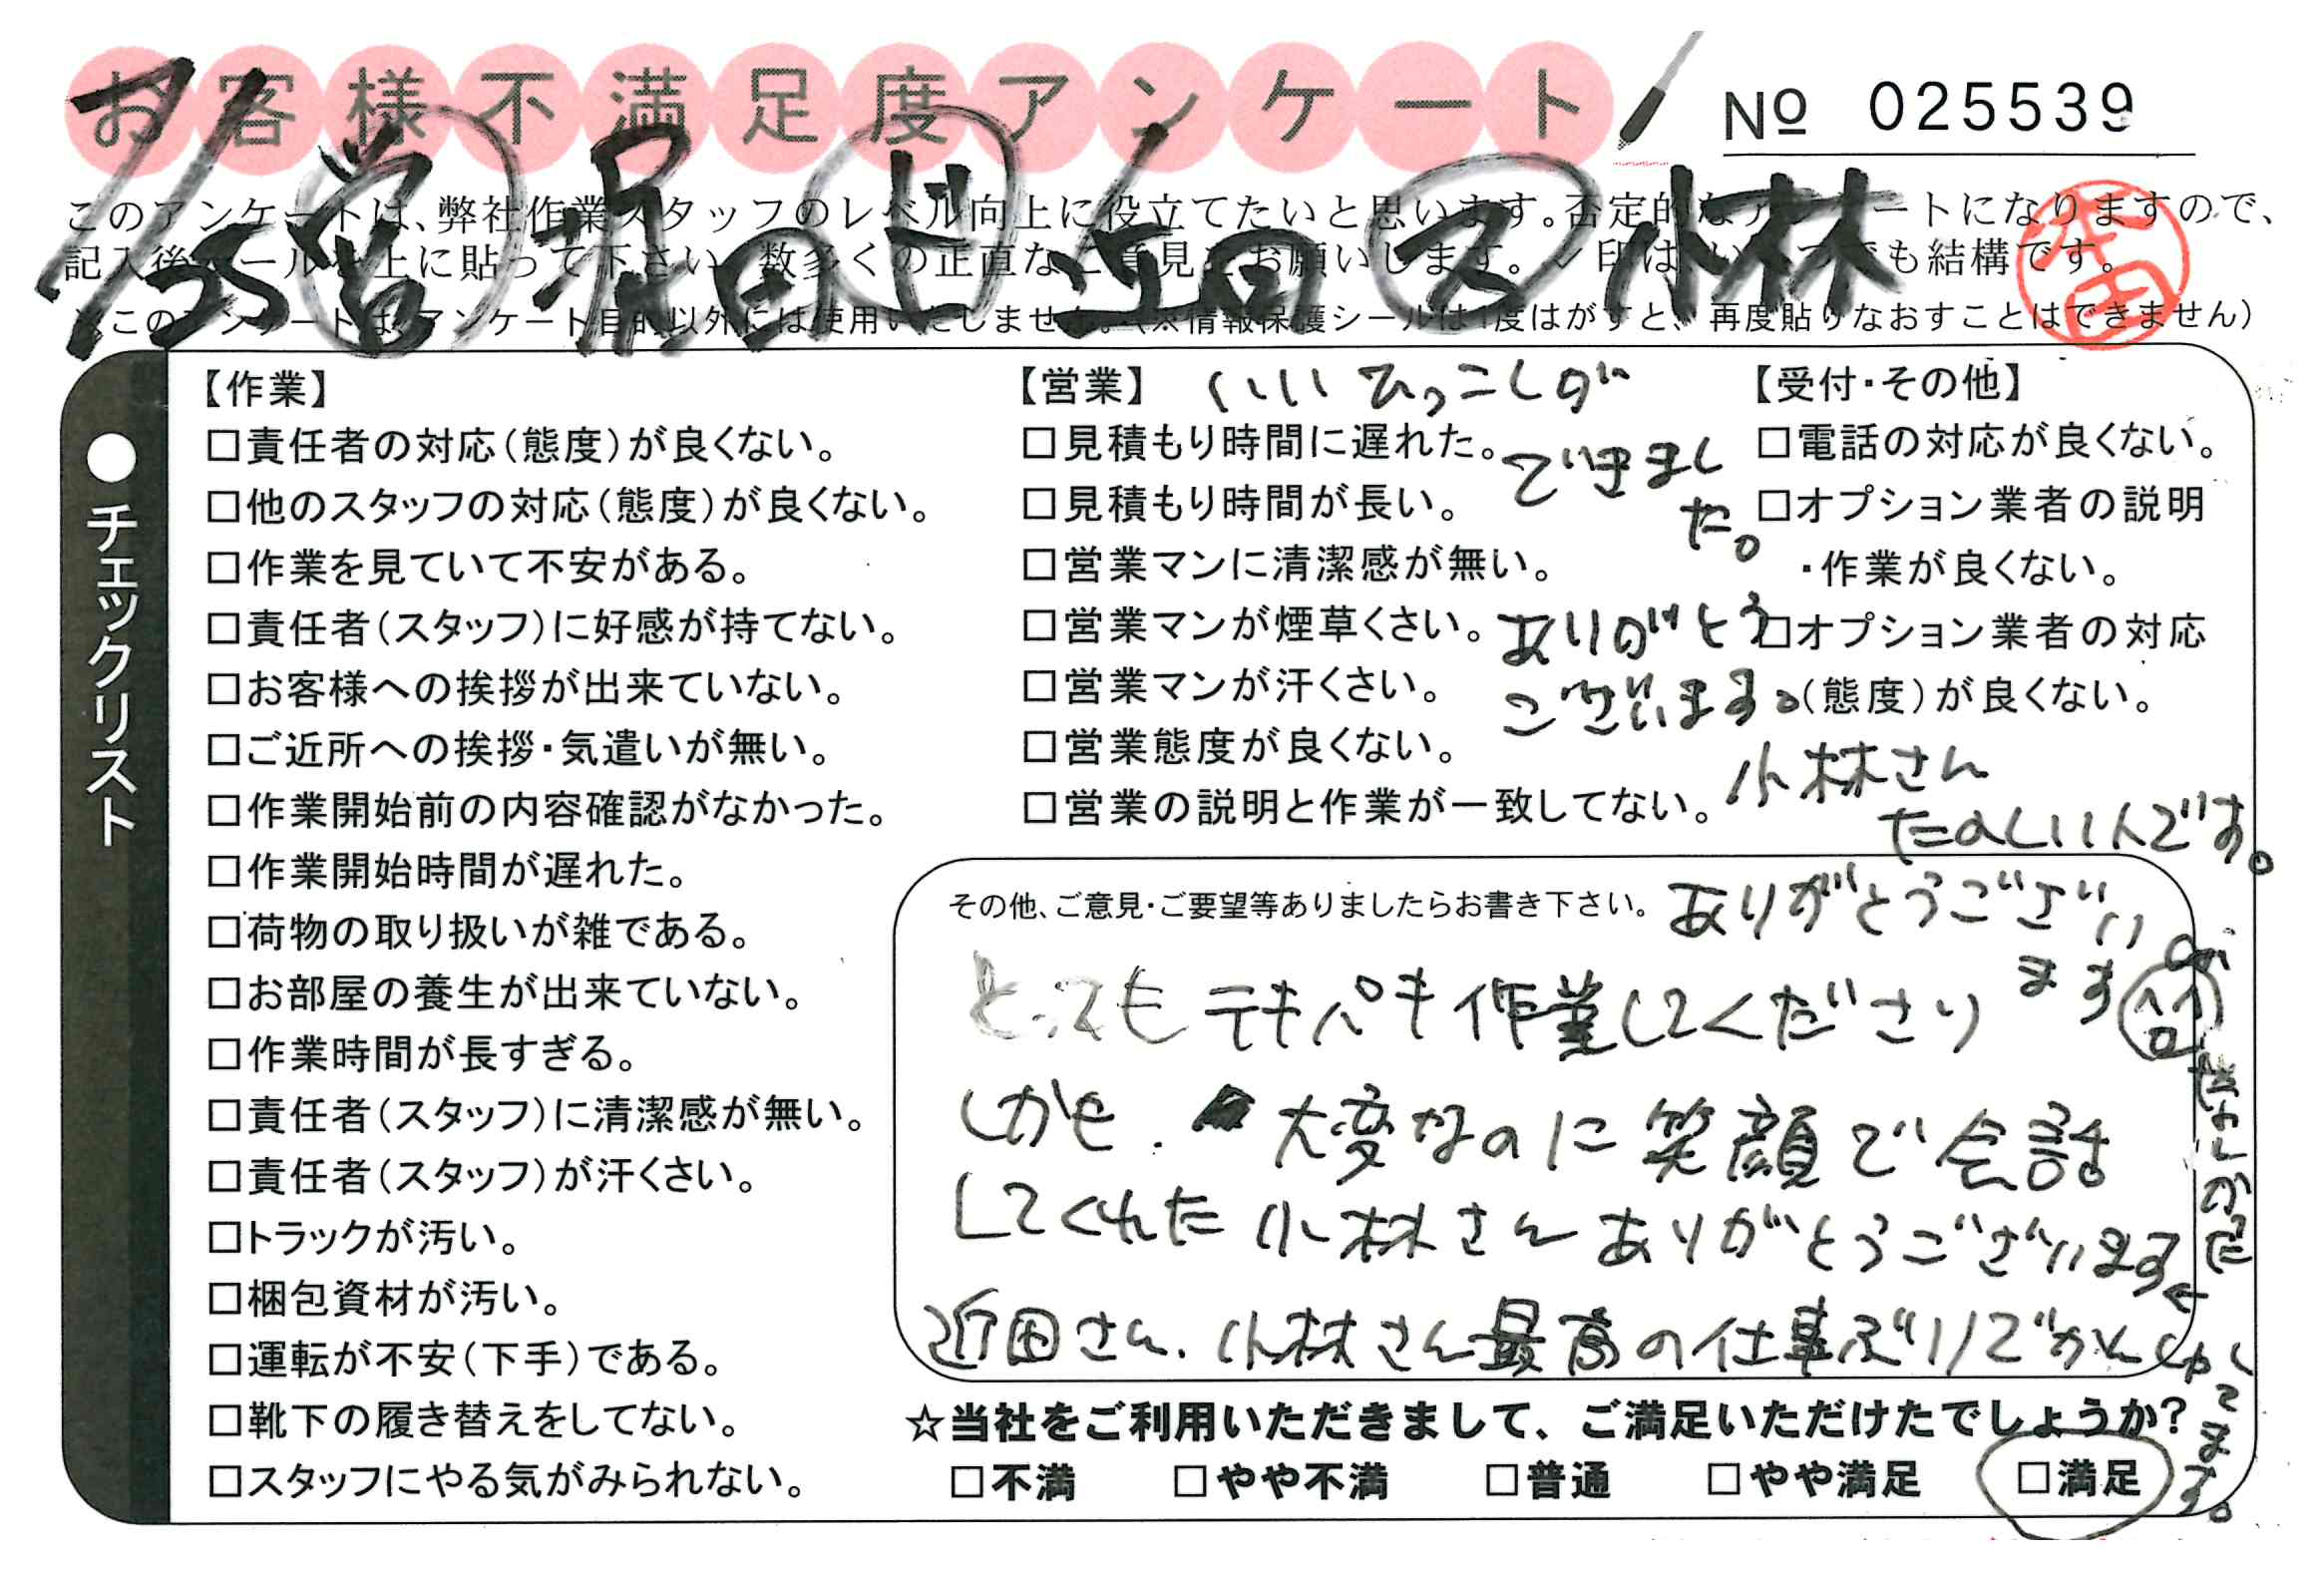 お客様不満足度アンケート
№ 025539
7/25 営 堀田 ド 近田 ヌ 小林
本田
このアンケートは、弊社作業スタッフのレベル向上に役立てたいと思います。否定的なアンケートになりますので、
記入後シールを上に貼って下さい。数多くの正直なご意見をお願いします。✓印は、いくつでも結構です。
※このアンケートは、アンケート目的以外には使用いたしません。(※情報保護シールは1度はがすと、再度貼りなおすことはできません)
●チェックリスト
【作業】
□責任者の対応(態度)が良くない。
□他のスタッフの対応(態度)が良くない。
□作業を見ていて不安がある。
□責任者(スタッフ)に好感が持てない。
□お客様への挨拶が出来ていない。
□ご近所への挨拶・気遣いが無い。
□作業開始前の内容確認がなかった。
□作業開始時間が遅れた。
□荷物の取り扱いが雑である。
□お部屋の養生が出来ていない。
□作業時間が長すぎる。
□責任者(スタッフ)に清潔感が無い。
□責任者(スタッフ)が汗くさい。
□トラックが汚い。
□梱包資材が汚い。
□運転が不安(下手)である。
□靴下の履き替えをしてない。
□スタッフにやる気がみられない。
【営業】
□見積もり時間に遅れた。
□見積もり時間が長い。
□営業マンに清潔感が無い。
□営業マンが煙草くさい。
□営業マンが汗くさい。
□営業態度が良くない。
□営業の説明と作業が一致してない。
【受付・その他】
□電話の対応が良くない。
□オプション業者の説明
・作業が良くない。
□オプション業者の対応
(態度)が良くない。
いいひっこしが
できまし
た。
ありがとう
ございます。
小林さん
たのしい人です。
その他、ご意見・ご要望等ありましたらお書き下さい。
ありがとうござい
ます
とってもテキパキ作業してくださり
しかも、大変なのに笑顔で会話
してくれた小林さんありがとうございます
近田さん、小林さん最高の仕事ぶりでかんしゃしてます。
☆当社をご利用いただきまして、ご満足いただけたでしょうか?
□不満 □やや不満 □普通 □やや満足 □満足